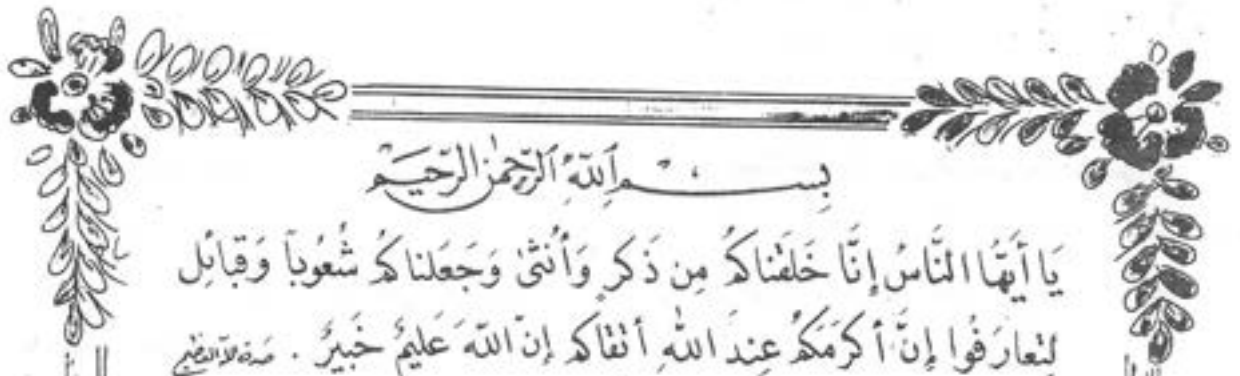 بِسْمِ اللَّهِ الرَّحْمٰنِ الرَّحِيمِ
يَا أَيُّهَا النَّاسُ إِنَّا خَلَقْنَاكُمْ مِن ذَكَرٍ وَأُنثَىٰ وَجَعَلنَاكُمْ شُعُوباً وَقَبائِل
لِتَعارَفُوا إِنَّ أَكرَمَكُمْ عِندَ اللهِ أَتقَاكُم إِنَّ اللهَ عَلِيمٌ خَبِيرٌ . صدق الله العظيم